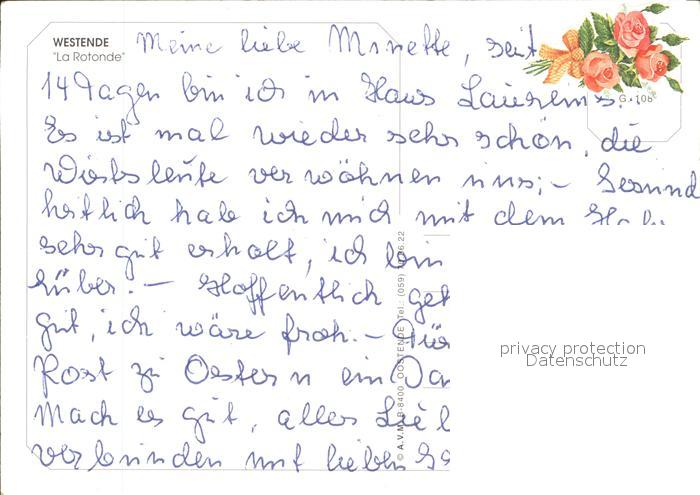 WESTENDE
"La Rotonde"
Meine liebe Minette, seit
14 Tagen bin ich in Haus Laurens.
G. 108
Es ist mal wieder sehr schön, die
Wirtsleute verwöhnen uns; – Gesund
heitlich habe ich mich mit dem
sehr gut erholt, ich bin
– Hoffentlich geh
gut, ich wäre froh. – Für
Post zu Ostern ein Da
Mach es gut, alles Lie
verbunden mit lieben
© A.V.M. B-8400 OOSTENDE Tel.: (059)
privacy protection
Datenschutz